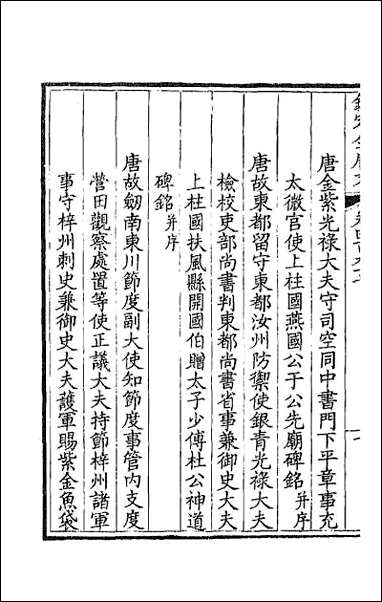 唐金紫光祿大夫守司空同中書門下平章事充
太微宮使上柱國燕國公于公先廟碑銘并序
唐故東都留守東都汝州防禦使銀青光祿大夫
檢校吏部尚書判東都尚書省事兼御史大夫
上柱國扶風縣開國伯贈太子少傅杜公神道
碑銘并序
唐故劒南東川節度副大使知節度事管內支度
營田觀察處置等使正議大夫持節梓州諸軍
事守梓州刺史兼御史大夫護軍賜紫金魚袋